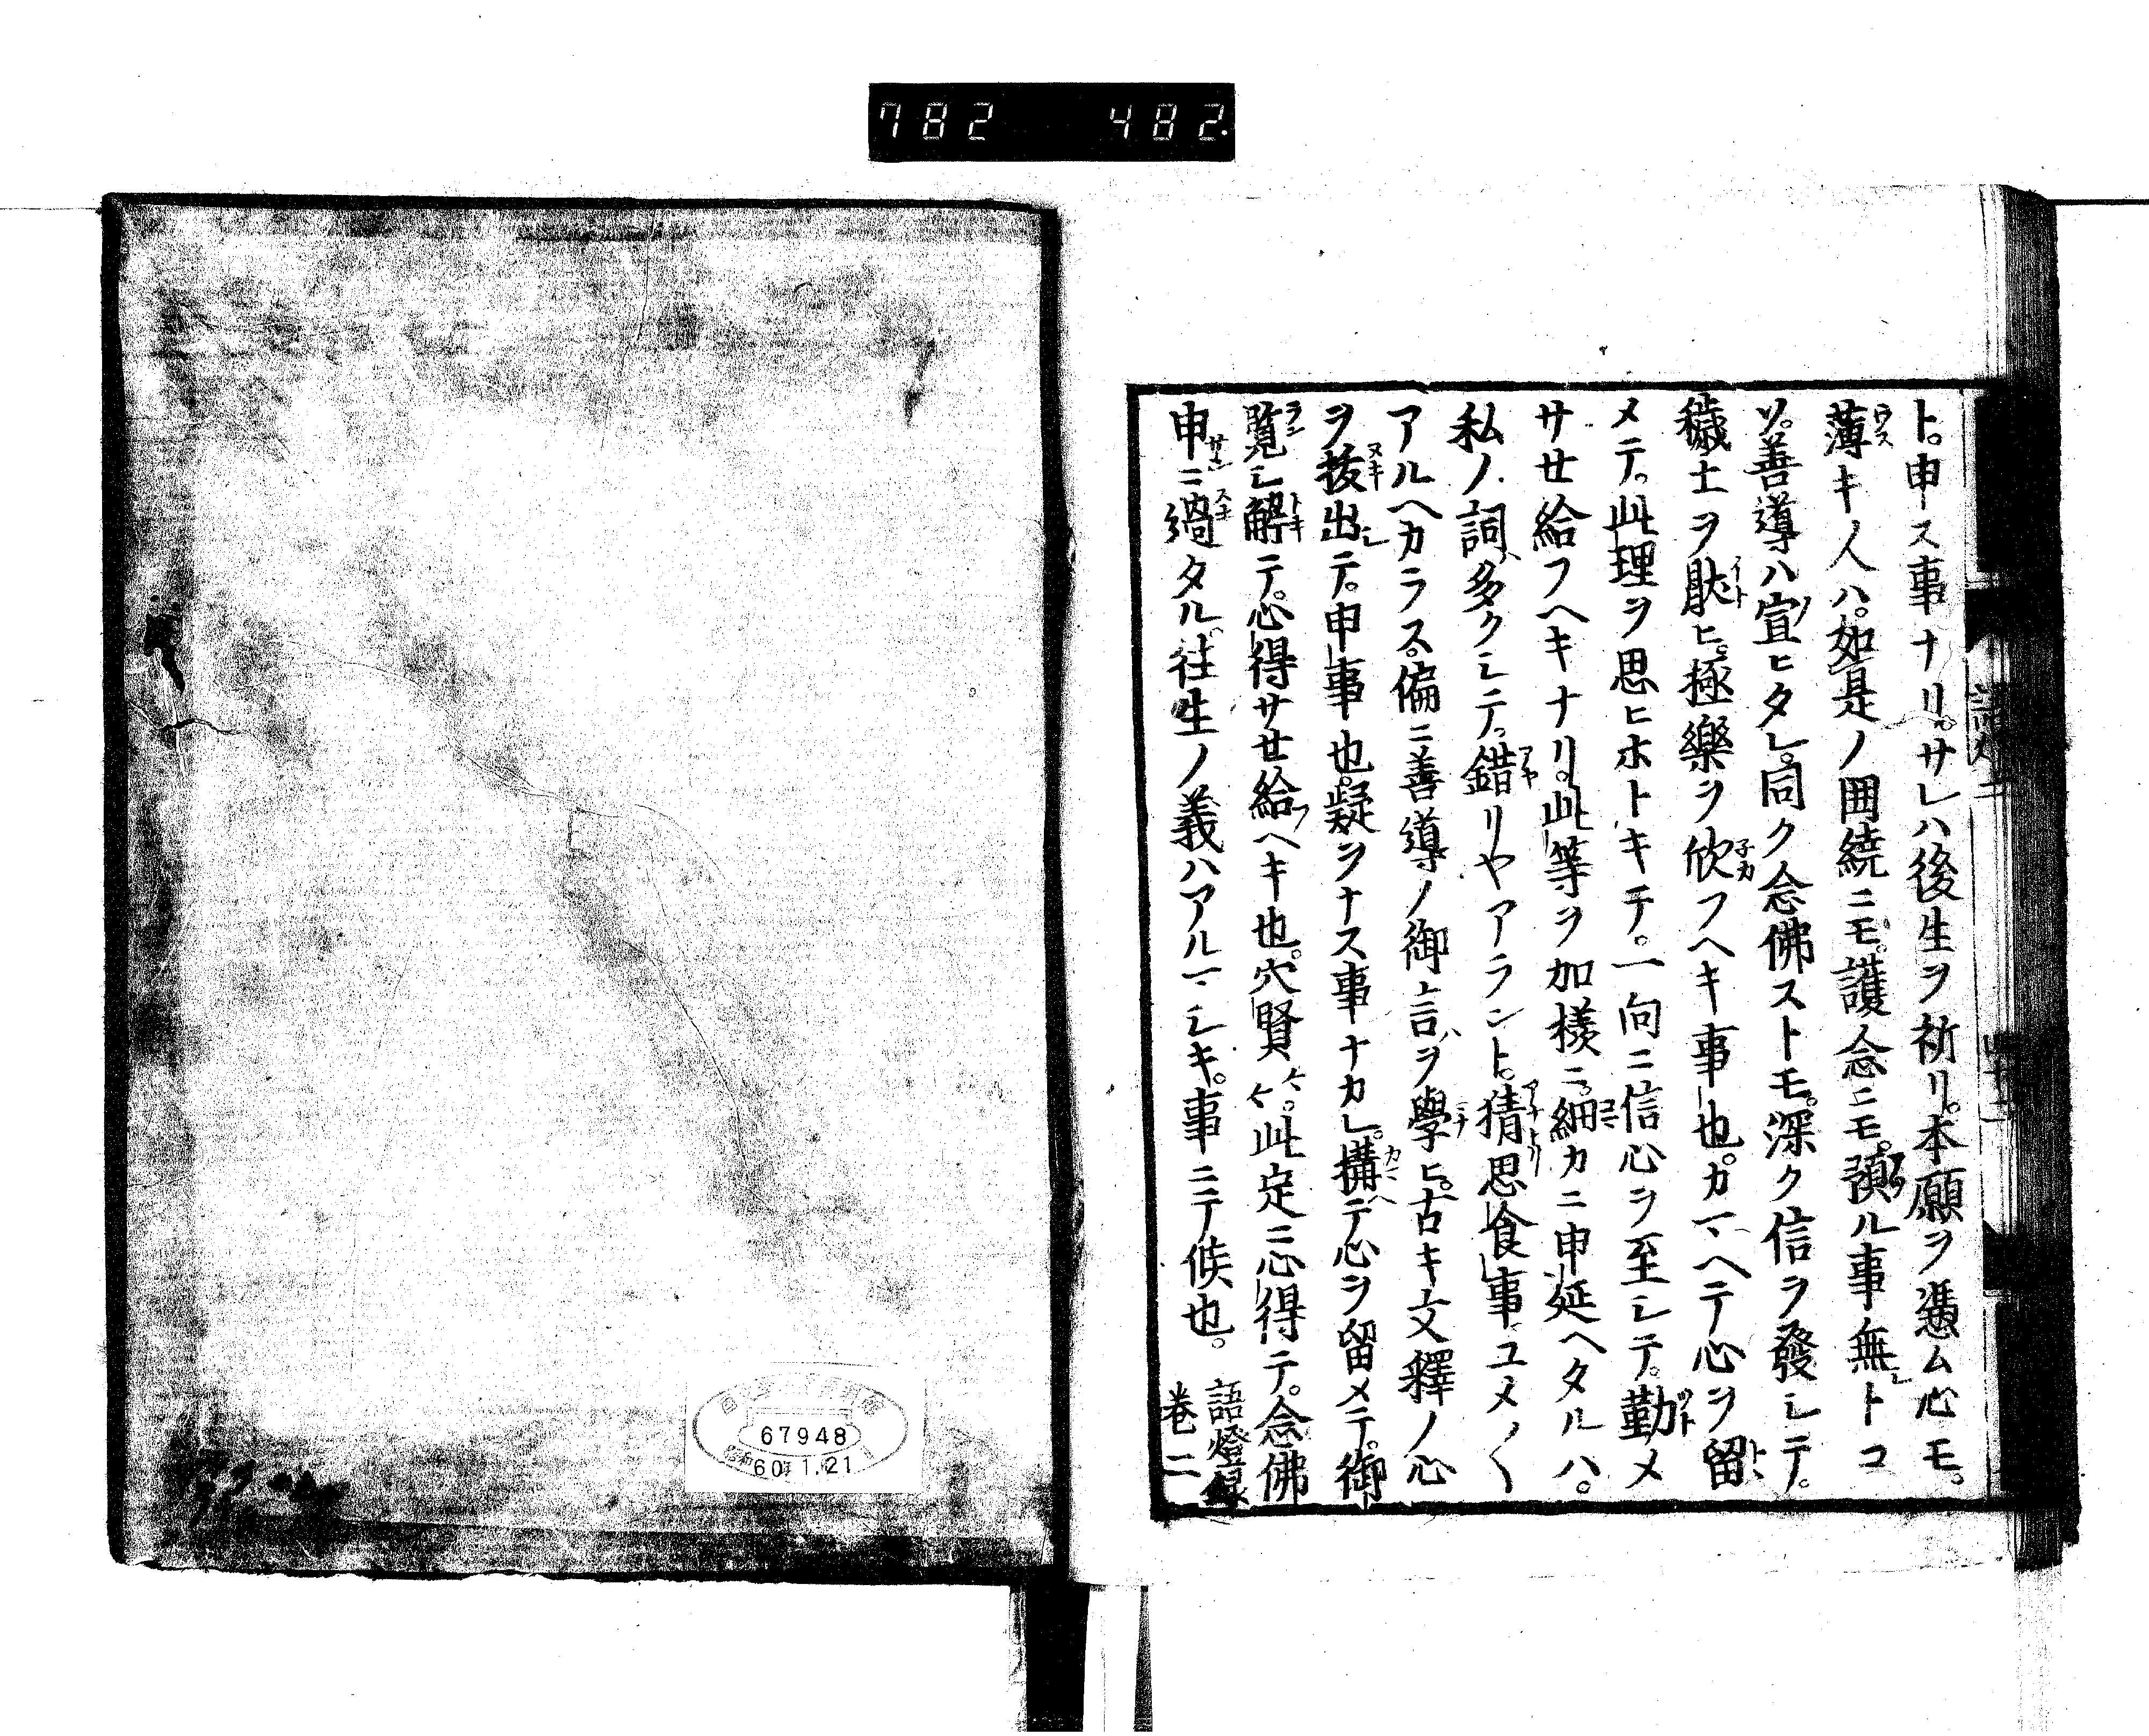 782 482
ト。申ス事ナリ。サレハ後生ヲ祈リ。本願ヲ憑ム心モ。
薄キ人ハ。如是ノ囲繞ニモ。護念ニモ。預ル事無シトコ
ソ。善導ハ宣ヒタレ。同ク念佛ストモ。深ク信ヲ發シテ。
穢土ヲ猒ヒ。極樂ヲ欣フヘキ事也。カマヘテ心ヲ留
メテ。此理ヲ思ヒホトキテ。一向ニ信心ヲ至シテ。勤メ
サセ給フヘキナリ。此等ヲ加樣ニ。細カニ申延ヘタルハ。
私ノ詞多クシテ。錯リヤアラント。猜思食事ユメ〱
アルヘカラス。偏ニ善導ノ御言ヲ學ヒ。古キ文釋ノ心
ヲ抜出シテ。申事也。疑ヲナス事ナカレ。構テ心ヲ留メテ。御
覽シ解テ。心得サセ給フヘキ也。穴賢〻〻。此定ニ心得テ。念佛
申ニ過タル。往生ノ義ハアルマシキ。事ニテ候也。
語燈録
巻二
67948
60.11.21